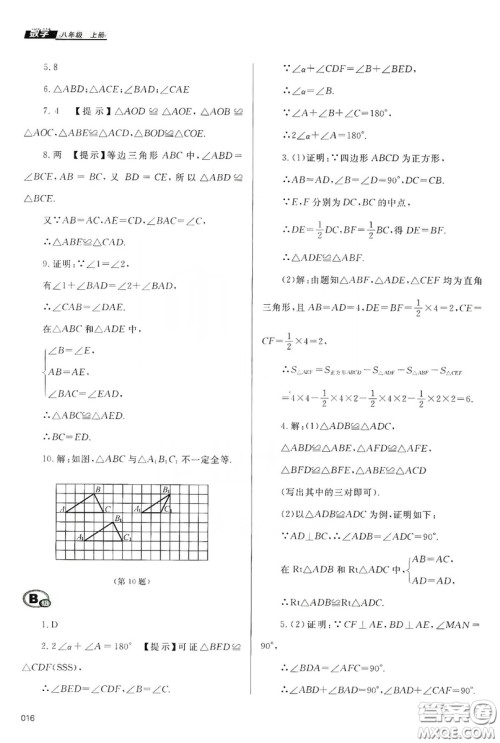 数学 八年级 上册
5.8
6.△ABD;△ACE;∠BAD;∠CAE
7.4 【提示】△AOD≌△AOE,△AOB≌
△AOC,△ABE≌△ACD,△BOD≌△COE.
8.两 【提示】等边三角形 ABC 中,∠ABD=
∠BCE,AB=BC,又 BD=CE,所以△ABD≌
△BCE.
又∵AB=AC,∠BAC=∠C,
∴△ABE≌△CAD.
9.证明:∵∠1=∠2,
有∠1+∠CAE=∠2+∠CAE,
∴∠BAC=∠DAE.
在△ABC 和△ADE 中,
∠B=∠E,
AB=AE,
∠BAC=∠EAD,
∴△ABC≌△AED.
∴BC=ED.
10.解:如图,△ABC 与△A₁B₁C₁ 不一定全等.
A B C A₁ B₁ C₁
A₁ B₁ C₁
(第 10 题)
B组
1.D
2.2∠α+∠A=180° 【提示】可证△BED≌
△CDF(SSS),
∴∠BED=∠CDF,∠BDE=∠CFD.
∵∠α+∠CDF=∠B+∠BED,
∴∠α=∠B.
∵∠A+∠B+∠C=180°,
∴2∠α+∠A=180°.
3.(1)证明:∵四边形 ABCD 为正方形,
∴AB=AD,∠B=∠D=90°,DC=CB.
∵E,F 分别为 DC,BC 的中点,
∴DE=1/2DC,BF=1/2BC,得 DE=BF.
∴△ADE≌△ABF.
(2)解:由题知△ABF,△ADE,△CEF 均为直角
三角形,且 AB=AD=4,DE=BF=1/2×4=2,CE=
CF=1/2×4=2,
∴S△AEF=S正方形ABCD-S△ADE-S△ABF-S△CEF
=4×4-1/2×4×2-1/2×4×2-1/2×2×2=6.
4.解:(1)△ADB≌△ADC,
△ABD≌△ABE,△AFD≌△AFE,
△BFD≌△BFE,△ABE≌△ACD
(写出其中的三对即可).
(2)以△ADB≌△ADC 为例,证明如下:
∵AD⊥BC,∴∠ADB=∠ADC=90°.
在 Rt△ADB 和 Rt△ADC 中,
AB=AC,
AD=AD,
∴Rt△ADB≌Rt△ADC.
5.(1)证明:∵CF⊥AE,BD⊥AE,∠MAN=
90°,
∴∠ADB=∠AFC=90°.
∴∠ABD+∠BAD=90°,∠CAF+∠BAD=
90°.
016